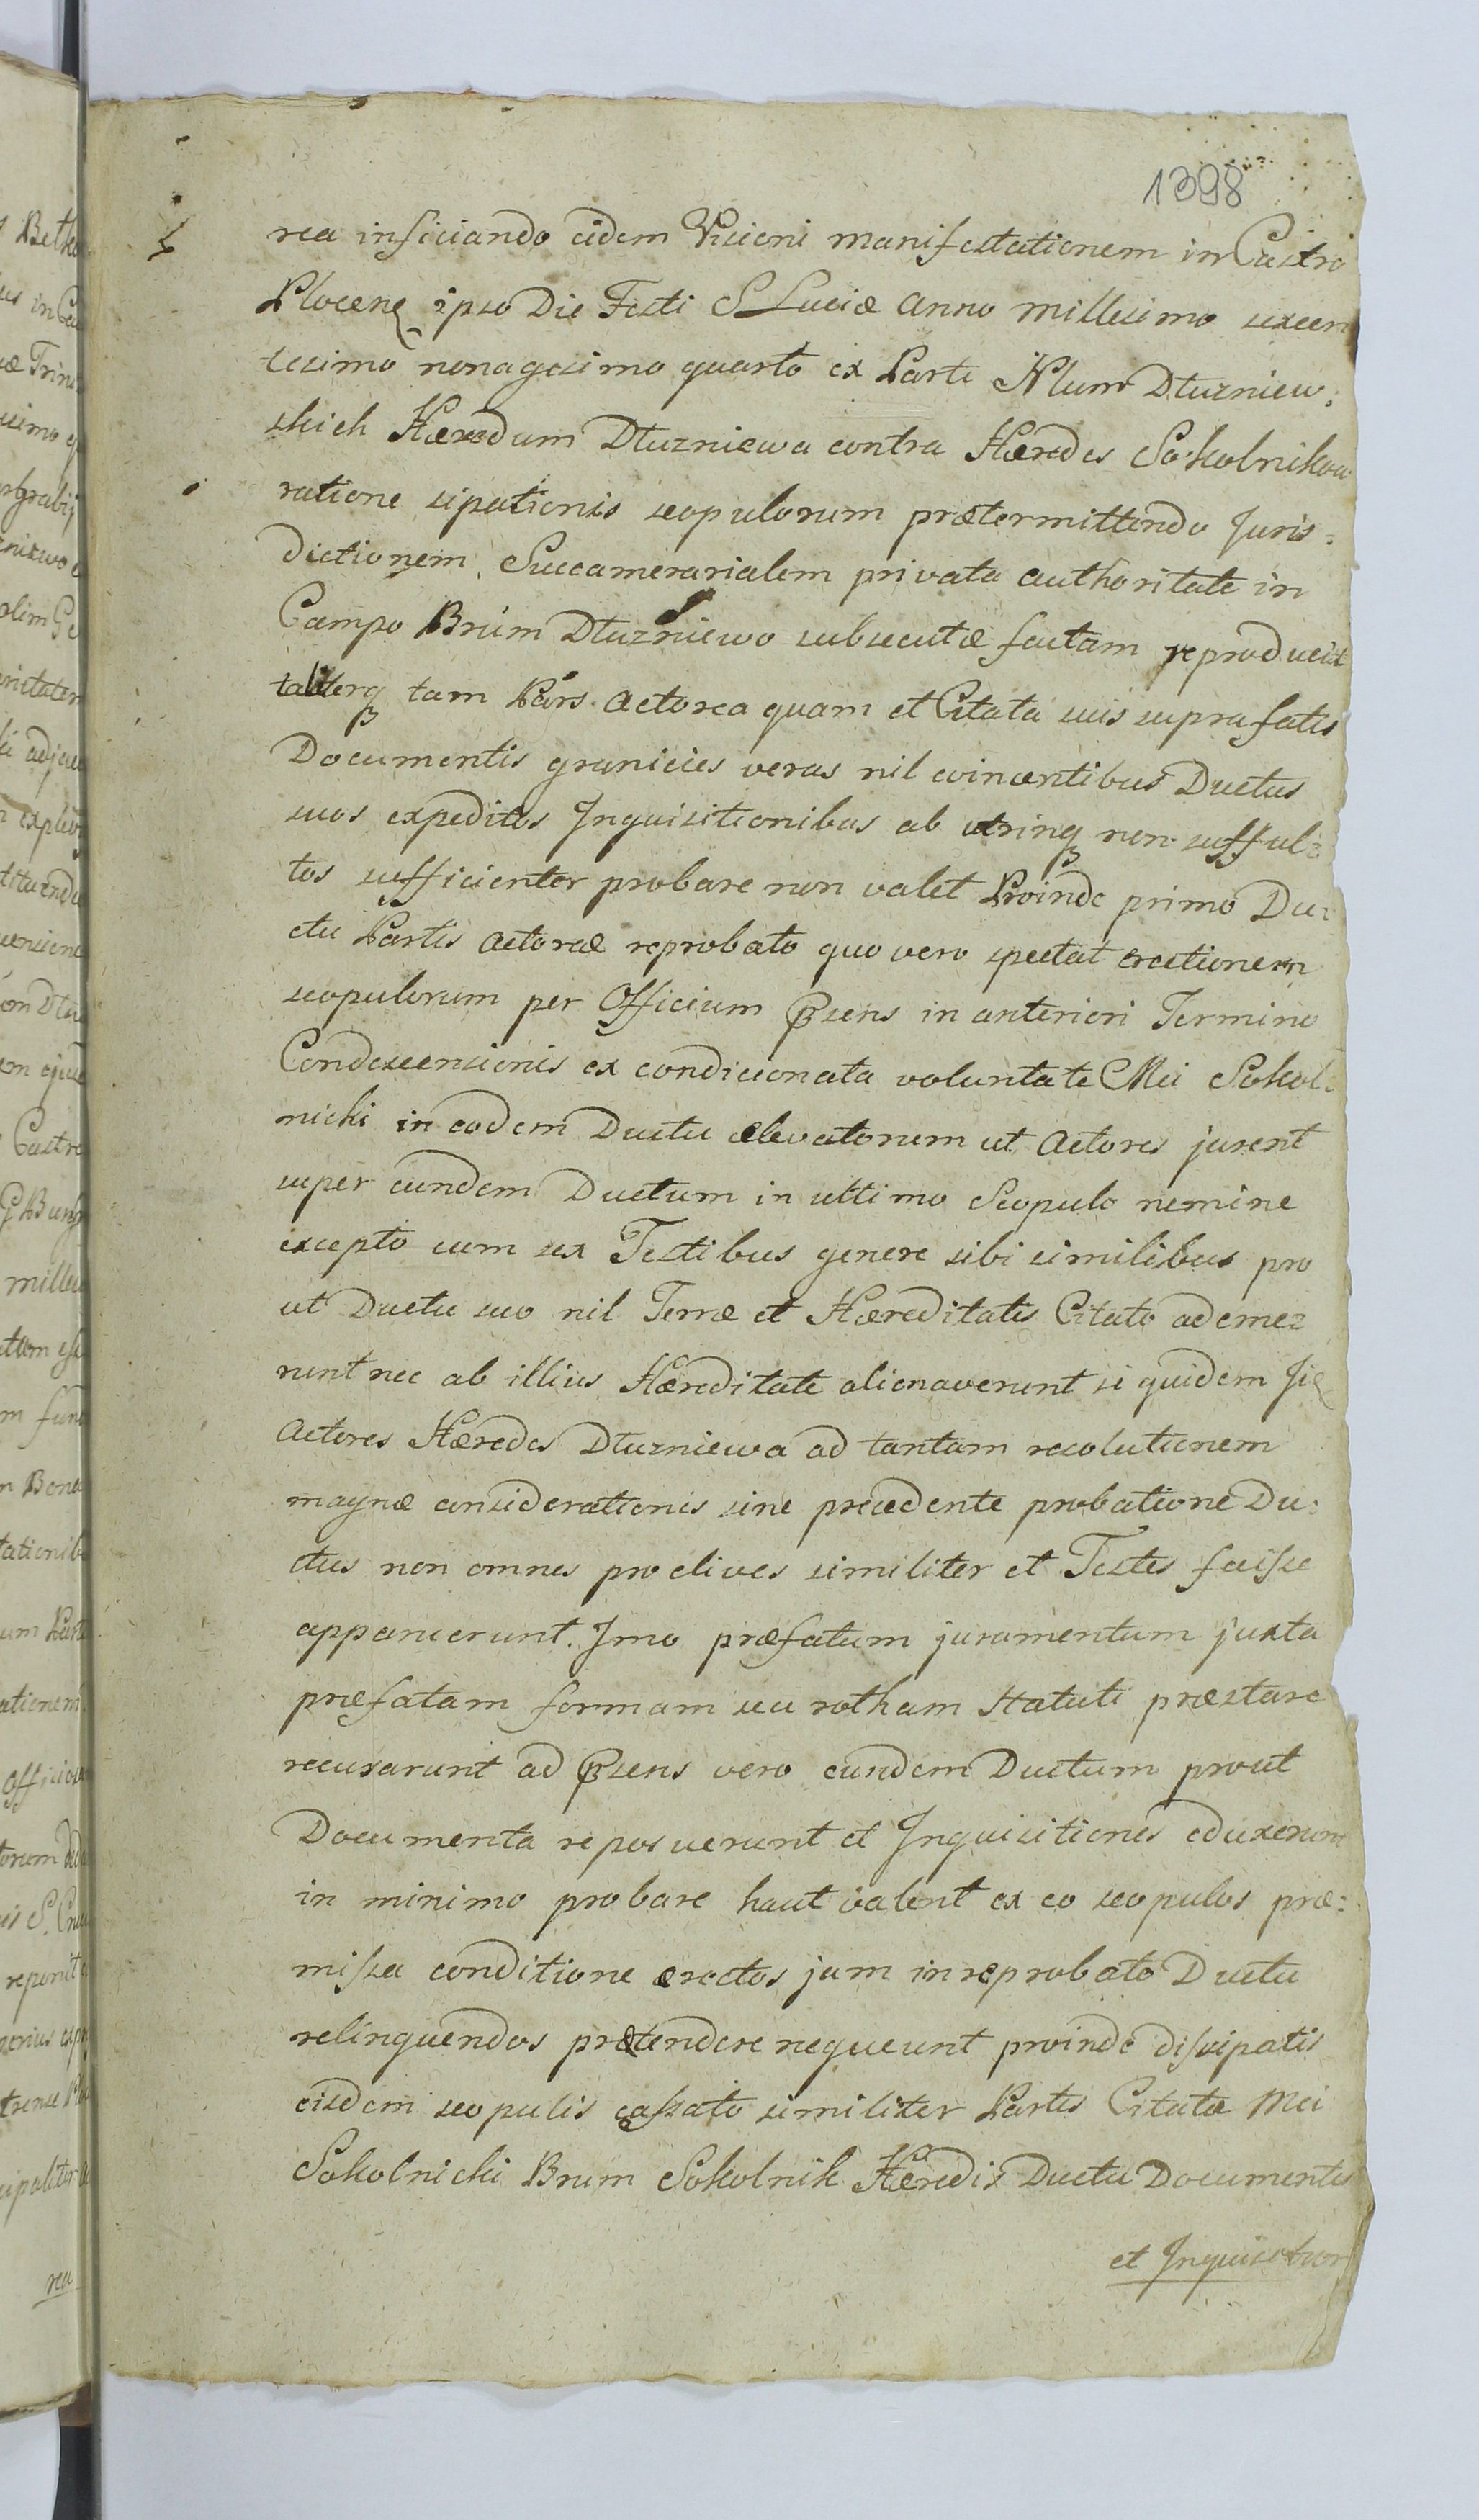 1398
rea inficiando eidem Visioni manifestationem in Castro
Plocenẽ ipso Die Festi S Luciæ Anno millesimo sexcen
tesimo nonagesimo quarto ex Parte Nlum Dłuzniew:
skich Hæredum Dłuzniewa contra Hæredes Sokolnikow
ratione sipationis scopulorum prætermittendo Juris:
dictionem Succamerarialem privata authoritate in
Campo Brum Dłuzniewo subsecutæ factam reproducit
taliterq tam Pars Actorea quam et Citata suis suprafatis
Documentis granicies veras nil evincentibus Ductus
suos expeditos Inquisitionibus ab utrinq non sufful:
tos sufficienter probare non valet Proinde primo Du:
ctu Partis Actoræ reprobato quo vero spectat erectionem
scopulorum per Officium Pſsens in anteriori Termino
Condescensionis ex condicionata voluntate Mci Sokol:
nicki in eodem Ductu elevatorum ut Actores jurent
super eundem Ductum in ultimo Scopulo nemine
excepto cum sex Testibus genere sibi similibus pro
ut Ductu suo nil Terræ et Hæreditatis Citato ademe:
runt nec ab illius Hæreditate alienaverunt si quidem Iiẽ
Actores Hæredes Dłuzniewa ad tantam resolutionem
magnæ considerationis sine precedente probatione Du:
ctus non omnes proclives similiter et Testes fuisse
apparuerunt. Imo præfatum juramentum juxta
præfatam formam seu rotham Statuti præstare
recusarunt ad Pſsens vero eundem Ductum prout
Documenta reposuerunt et Inquisitiones eduxerunt
in minimo probare haut valent ex eo scopulos præ:
missa conditione erectos jam in reprobato Ductu
relinquendos prætendere nequeunt proinde dissipatis
eisdem scopulis cassato similiter Partis Citatæ Mci
Sokolnicki Brum Sokolnik Hæredis Ductu Documentis
et Inquisition